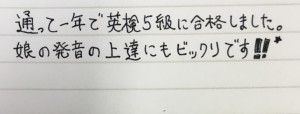 通って一年で英検5級に合格しました。
娘の発音の上達にもビックリです!!